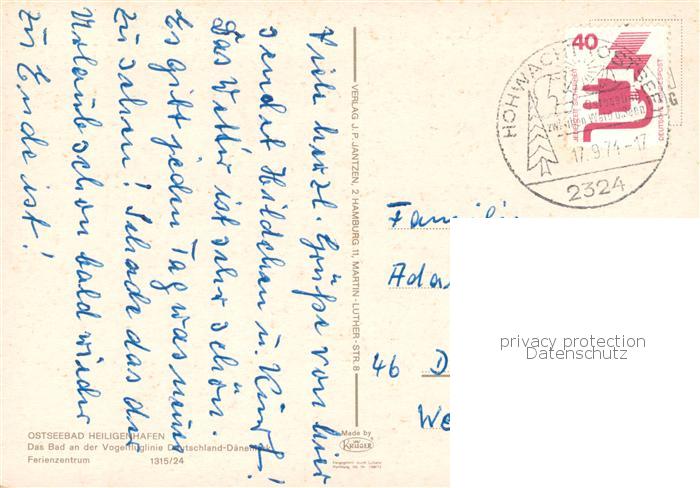 Viele herzl. Grüße von hier
sendet Hildchen u. Kurt!
Das Wetter ist sehr schön.
Es gibt jeden Tag was neues
zu sehen! Schade das der
Urlaub schon bald wieder
zu Ende ist!
OSTSEEBAD HEILIGENHAFEN
Das Bad an der Vogelfluglinie Deutschland-Dänemark
Ferienzentrum 1315/24
VERLAG J. P. JANTZEN, 2 HAMBURG 11, MARTIN-LUTHER-STR. 8
Made by
KRÜGER
40
DEUTSCHE BUNDESPOST
HOHWACHT
17.9.74-17
2324
Familie
Ada
46 D
We
privacy protection
Datenschutz